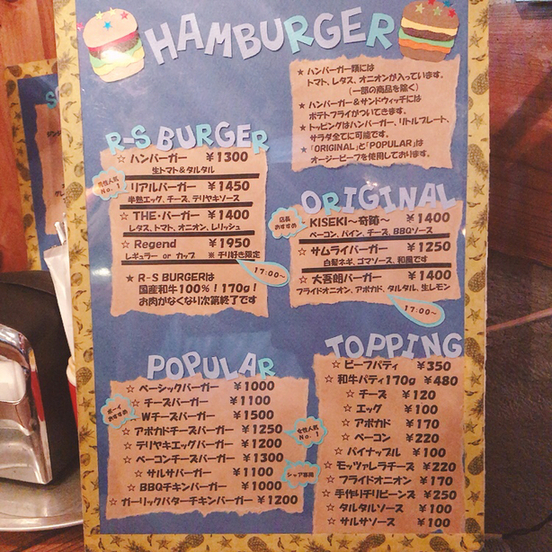 HAMBURGER
★ ハンバーガー類には
トマト、レタス、オニオンが入っています。
(一部の商品を除く)
★ ハンバーガー＆サンドウィッチには
ポテトフライがついてきます。
★ トッピングはハンバーガー、リトルプレート、
サラダ全てに可能です。
★ 「ORIGINAL」と「POPULAR」は
オージービーフを使用しております。
R-S BURGER
☆ ハンバーガー ￥1300
生トマト＆タルタル
男性人気
No.1
☆ リアルバーガー ￥1450
半熟エッグ、チーズ、テリヤキソース
☆ THE・バーガー ￥1400
レタス、トマト、オニオン、レリッシュ
☆ Regend ￥1950
レギュラー or カップ ※ チリ好き限定
17:00～
★ R-S BURGERは
国産和牛100%！170g！
お肉がなくなり次第終了です
ORIGINAL
店長
おすすめ
☆ KISEKI～奇跡～ ￥1400
ベーコン、パイン、チーズ、BBQソース
☆ サムライバーガー ￥1250
白髪ネギ、ゴマソース、和風です
☆ 大吾朗バーガー ￥1400
フライドオニオン、アボカド、タルタル、生レモン
17:00～
POPULAR
☆ ベーシックバーガー ￥1000
おすすめ
☆ チーズバーガー ￥1100
☆ Wチーズバーガー ￥1500
☆ アボカドチーズバーガー ￥1250
☆ テリヤキエッグバーガー ￥1200
☆ ベーコンチーズバーガー ￥1300
☆ サルサバーガー ￥1100
☆ BBQチキンバーガー ￥1000
☆ ガーリックバターチキンバーガー ￥1200
TOPPING
☆ ビーフパティ ￥350
☆ 和牛パティ170g ￥480
☆ チーズ ￥120
☆ エッグ ￥100
女性人気
No.1
☆ アボカド ￥170
☆ ベーコン ￥220
☆ パイナップル ￥100
☆ モッツァレラチーズ ￥220
☆ フライドオニオン ￥170
☆ 手作りチリビーンズ ￥250
☆ タルタルソース ￥100
☆ サルサソース ￥100